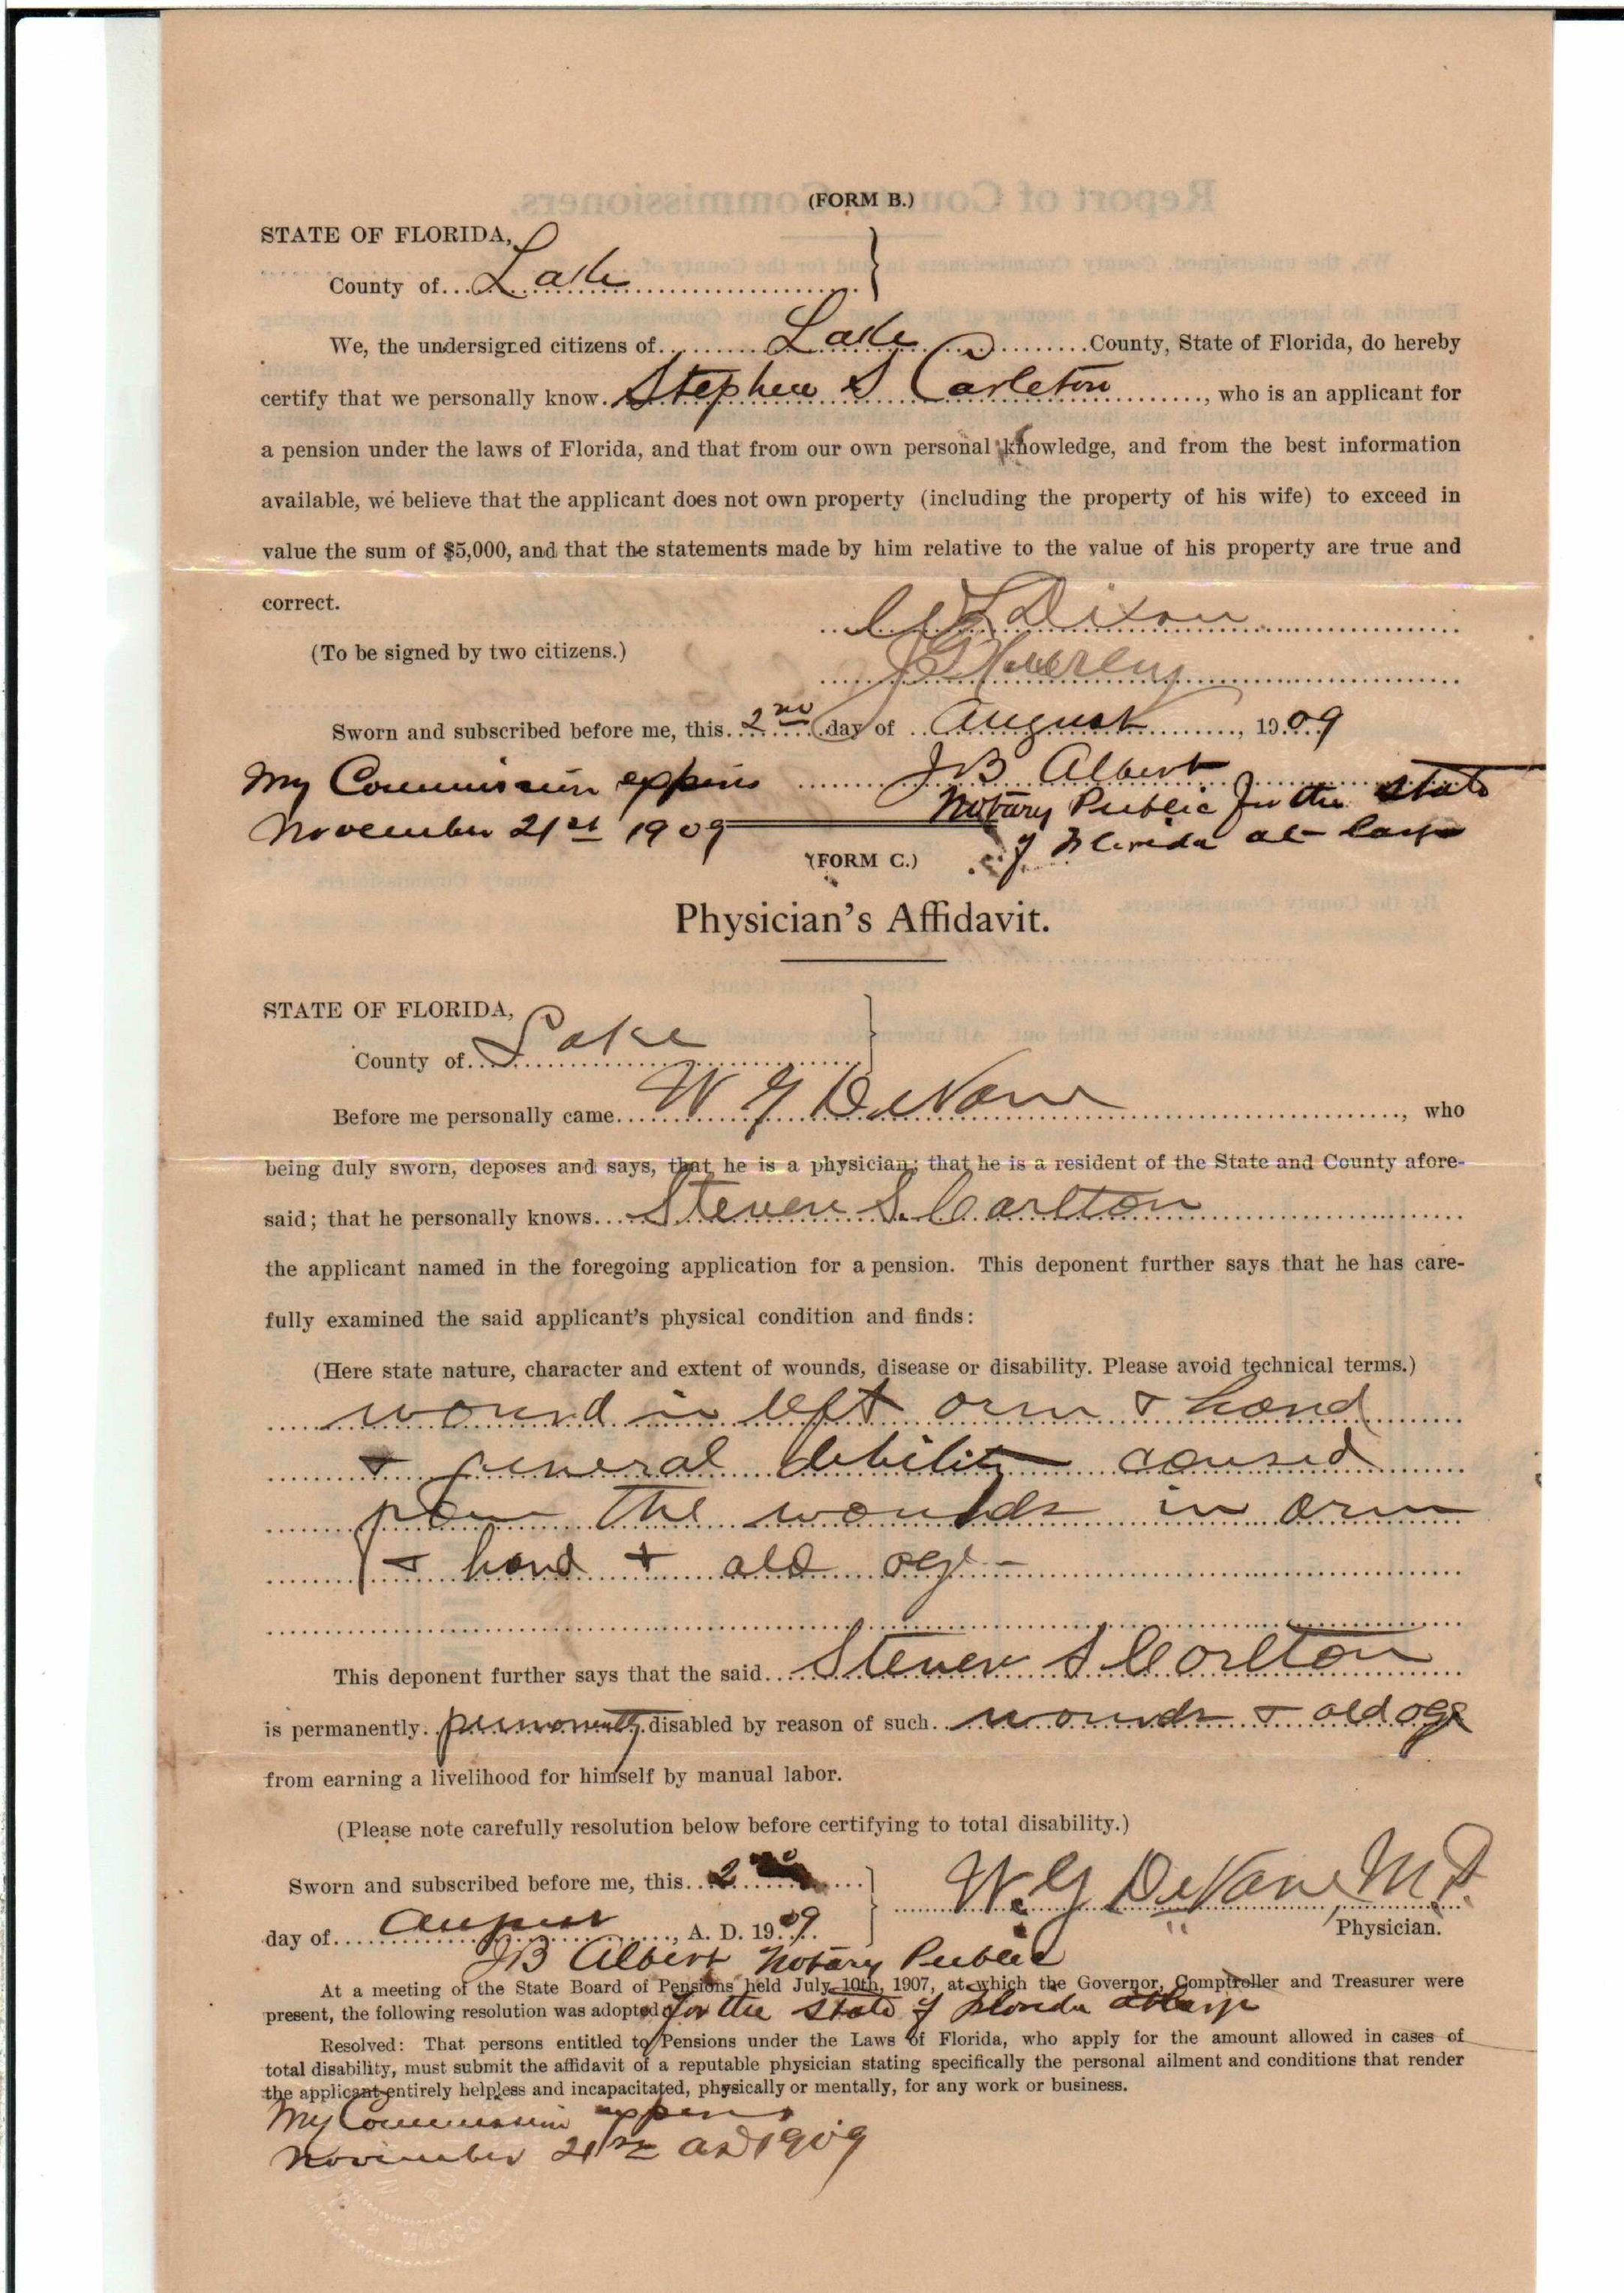 (FORM B.)
STATE OF FLORIDA,
County of Lake
We, the undersigned citizens of Lake County, State of Florida, do hereby
certify that we personally know Stephen S Carleton, who is an applicant for
a pension under the laws of Florida, and that from our own personal knowledge, and from the best information
available, we believe that the applicant does not own property (including the property of his wife) to exceed in
value the sum of $5,000, and that the statements made by him relative to the value of his property are true and
correct.
Dixon
(To be signed by two citizens.)
Sworn and subscribed before me, this 2nd day of August, 1909
My Commission expires JB Albert
Notary Public for the State
November 21st 1909
of Florida at large
(FORM C.)
Physician's Affidavit.
STATE OF FLORIDA,
County of Lake
Before me personally came W G DeVane, who
being duly sworn, deposes and says, that he is a physician; that he is a resident of the State and County afore-
said; that he personally knows Steven S. Carlton
the applicant named in the foregoing application for a pension. This deponent further says that he has care-
fully examined the said applicant's physical condition and finds:
(Here state nature, character and extent of wounds, disease or disability. Please avoid technical terms.)
wound in left arm & hand
& general debility caused
from the wounds in arm
& hand & old age
This deponent further says that the said Steven S Carlton
is permanently permanently disabled by reason of such wounds & old age
from earning a livelihood for himself by manual labor.
(Please note carefully resolution below before certifying to total disability.)
Sworn and subscribed before me, this 2
W. G DeVane M.D.
Physician.
day of August, A. D. 1909
JB Albert Notary Public
At a meeting of the State Board of Pensions held July 10th, 1907, at which the Governor, Comptroller and Treasurer were
present, the following resolution was adopted
for the State of Florida at large
Resolved: That persons entitled to Pensions under the Laws of Florida, who apply for the amount allowed in cases of
total disability, must submit the affidavit of a reputable physician stating specifically the personal ailment and conditions that render
the applicant entirely helpless and incapacitated, physically or mentally, for any work or business.
My Commission expires
November 21st AD 1909